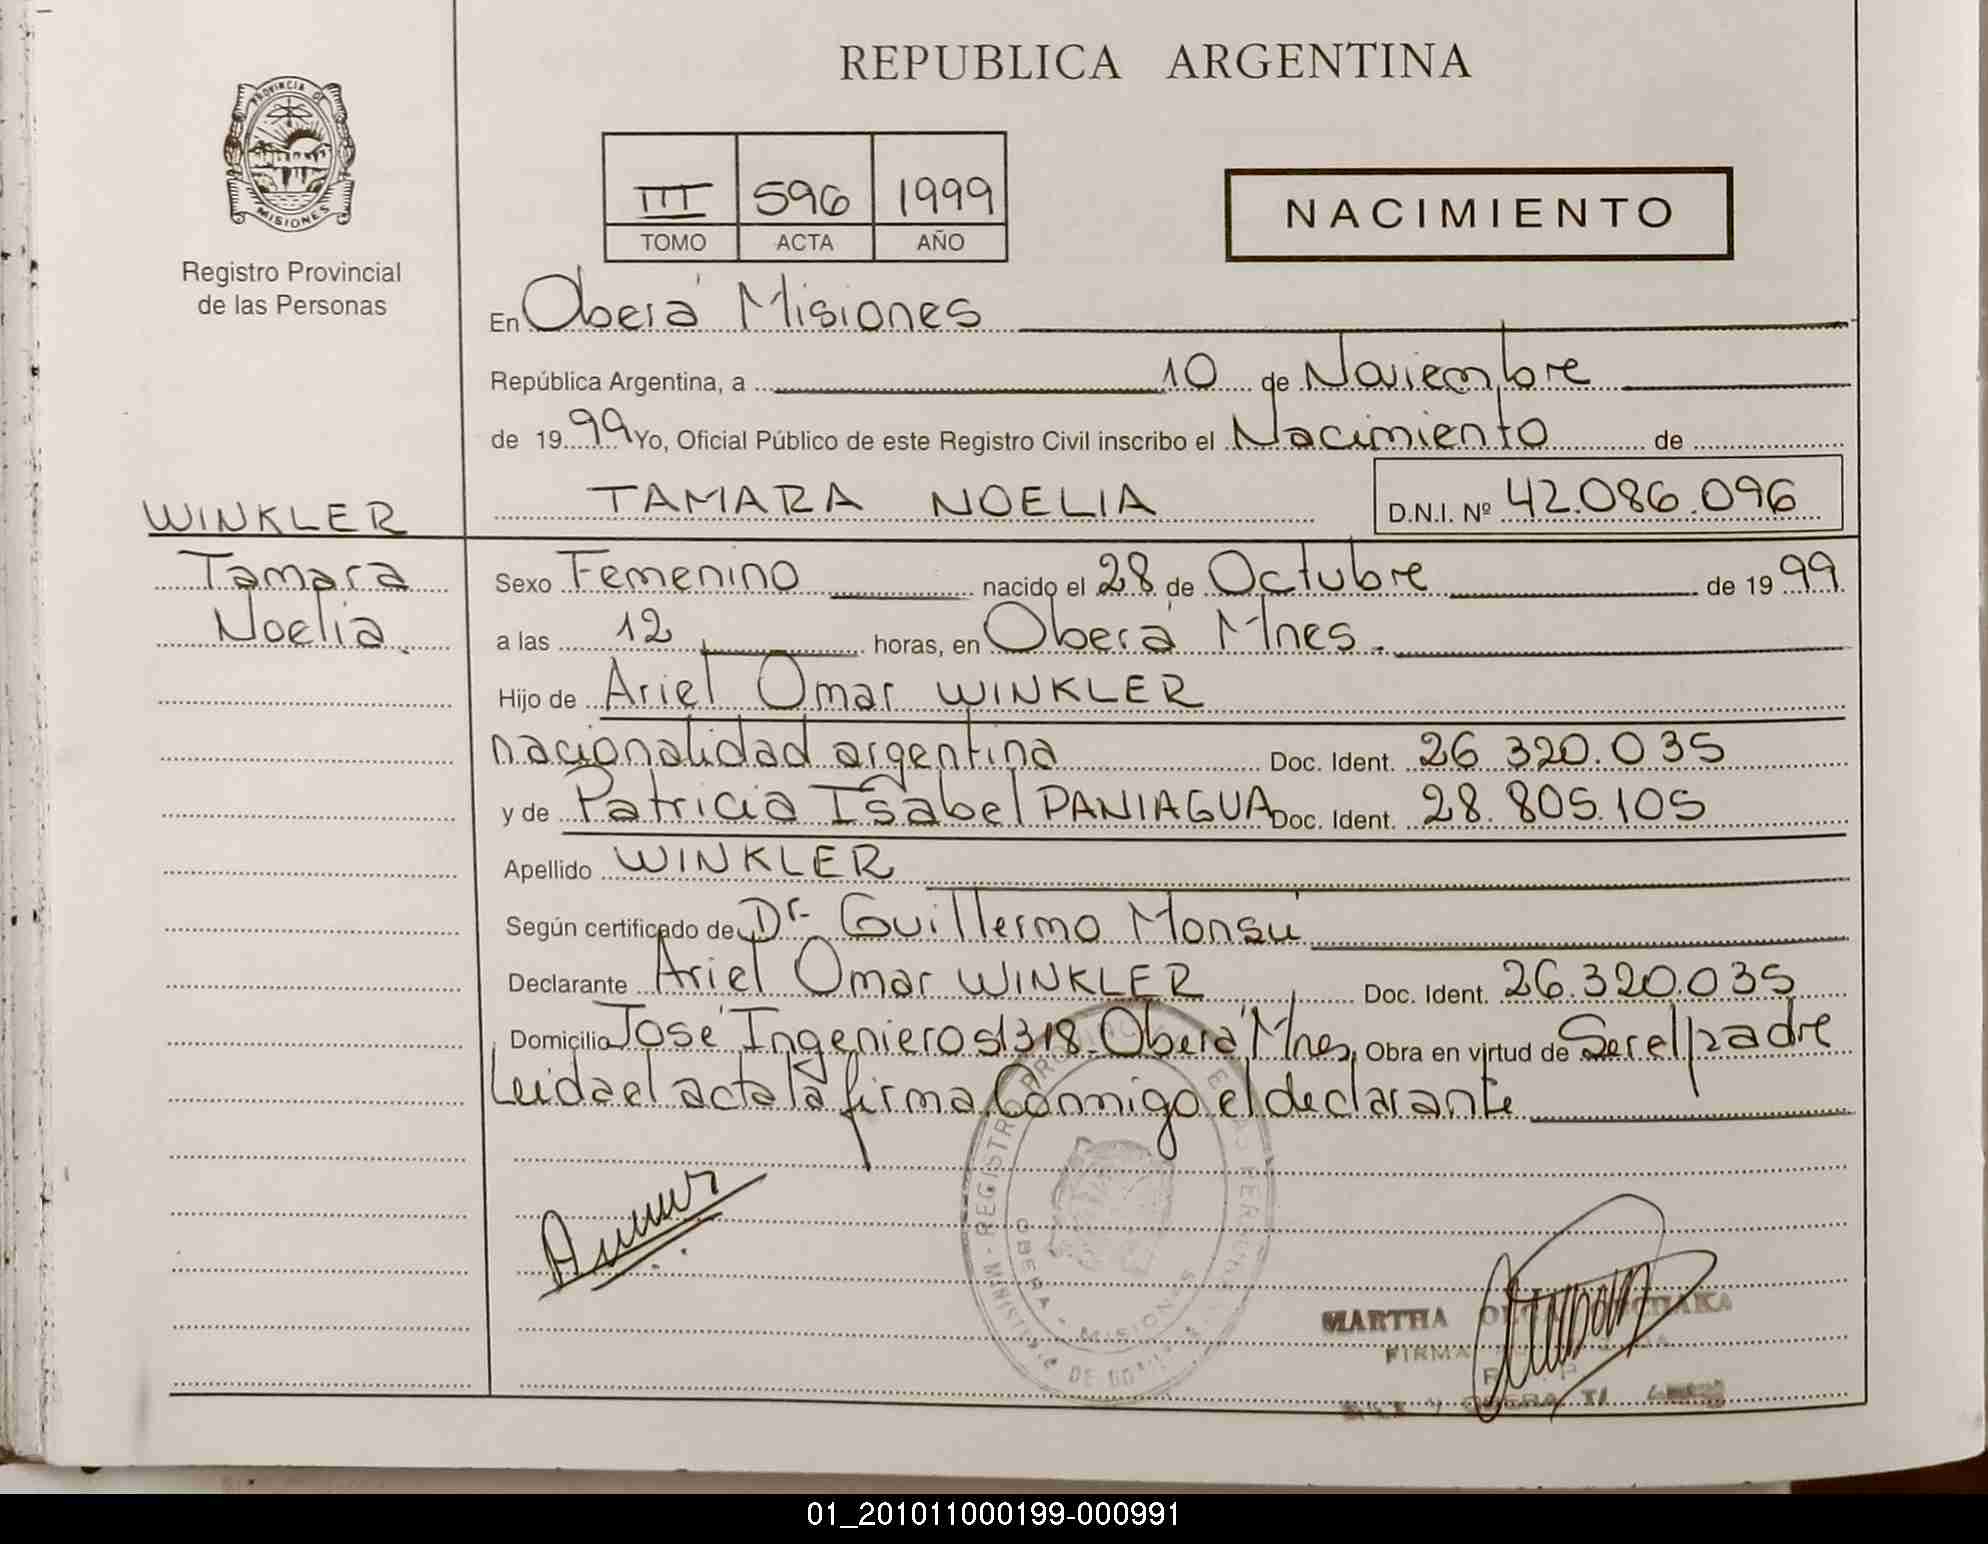 REPUBLICA ARGENTINA
PROVINCIA DE
MISIONES
Registro Provincial
de las Personas
III 596 1999
TOMO ACTA AÑO
NACIMIENTO
En Oberá Misiones
República Argentina, a 10 de Noviembre
de 1999 Yo, Oficial Público de este Registro Civil inscribo el Nacimiento de
TAMARA NOELIA D.N.I. Nº 42.086.096
WINKLER
Tamara
Noelia
Sexo Femenino nacido el 28 de Octubre de 1999
a las 12 horas, en Oberá Mnes.
Hijo de Ariel Omar WINKLER
nacionalidad argentina Doc. Ident. 26 320.035
y de Patricia Isabel PANIAGUA Doc. Ident. 28.805.105
Apellido WINKLER
Según certificado de Dr. Guillermo Monsú
Declarante Ariel Omar WINKLER Doc. Ident. 26.320.035
Domicilio José Ingenieros 1318. Oberá Mnes, Obra en virtud de Ser el padre
Leida el acta la firma Conmigo el declarante
REGISTRO
OBERA - MISIONES
MARTHA
FIRMA
OBERA
01_201011000199-000991